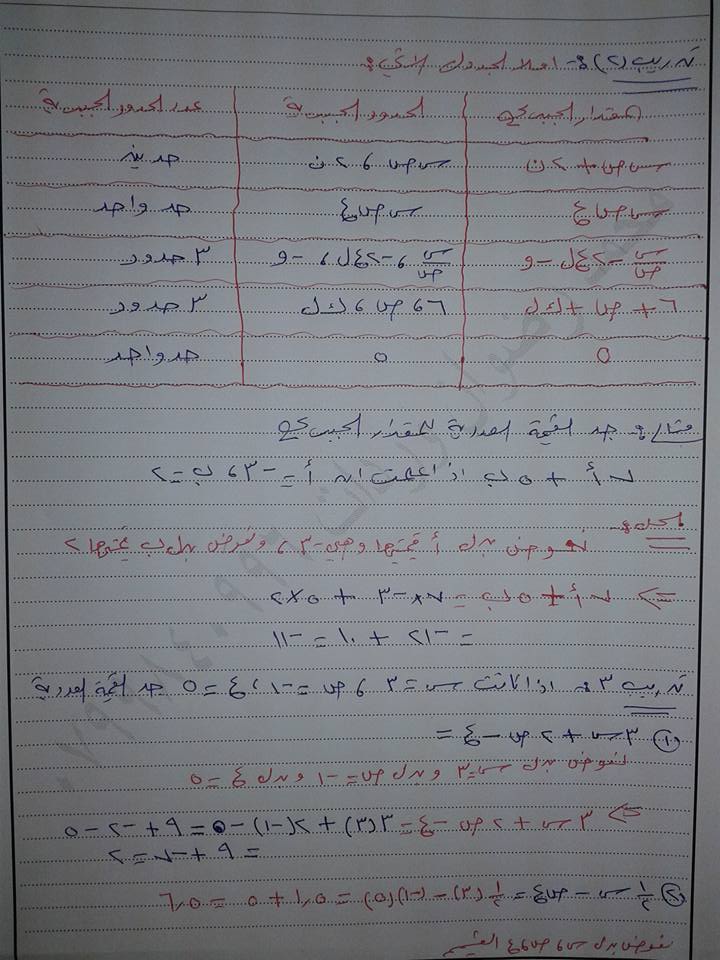 تدريب (٢) :- املأ الجدول الآتي :
المقدار الجبري | الحدود الجبرية | عدد الحدود الجبرية
س ص + ٢ ن | س ص ، ٢ ن | حدين
س ص ع | س ص ع | حد واحد
س/ص - ٢ع ل - و | س/ص ، -٢ع ل ، - و | ٣ حدود
٦ + ص + ك ل | ٦ ، ص ، ك ل | ٣ حدود
٥ | ٥ | حد واحد
مثال : جد القيمة العددية للمقدار الجبري
٧أ + ٥ب اذا علمت ان أ = -٣ ، ب = ٢
الحل :-
نعوض بدل أ قيمتها وهي -٣ ، ونعوض بدل ب قيمتها ٢
<= ٧أ + ٥ب = ٧×-٣ + ٥×٢
= -٢١ + ١٠ = -١١
تدريب ٣ : اذا كانت س = ٣ ، ص = -١ ، ع = ٥ جد القيمة العددية
(١) ٣س + ٢ص - ع =
نعوض بدل س = ٣ وبدل ص = -١ وبدل ع = ٥
<= ٣س + ٢ص - ع = ٣(٣) + ٢(-١) - ٥ = ٩ + -٢ - ٥
= ٩ + -٧ = ٢
(٢) ١/٢ س - ص ع = ١/٢ (٣) - (-١)(٥) = ١,٥ + ٥ = ٦,٥
نعوض بدل س ، ص ، ع القيم